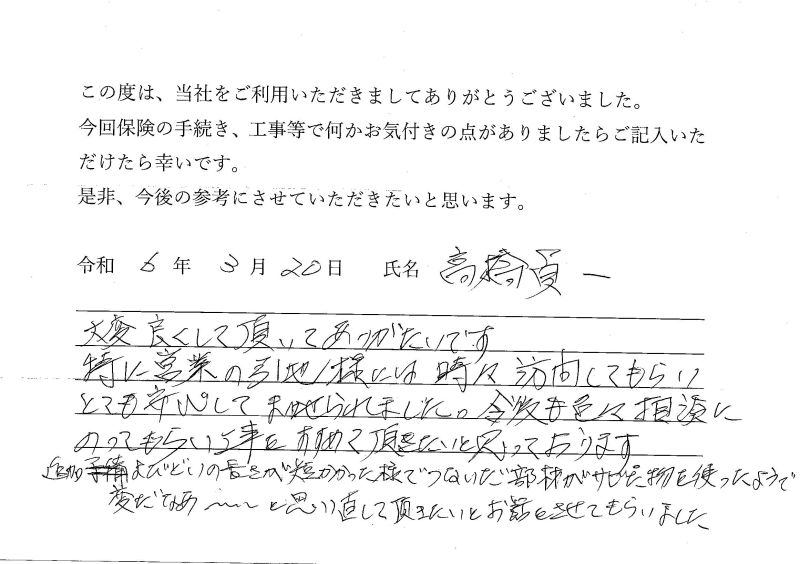 この度は、当社をご利用いただきましてありがとうございました。
今回保険の手続き、工事等で何かお気付きの点がありましたらご記入いた
だけたら幸いです。
是非、今後の参考にさせていただきたいと思います。
令和 6 年 3 月 20 日 氏名 高橋貢一
大変良くして頂いてありがたいです
特に営業の引地様には時々訪問してもらい
とても安心してまかせられました。今後も色々相談に
のってもらい工事をすすめて頂きたいと思っております
追加 よびどいの長さが短かかった様でつないだ部材がサビた物を使ったようで
変だなあ〜〜と思い直して頂きたいとお話をさせてもらいました